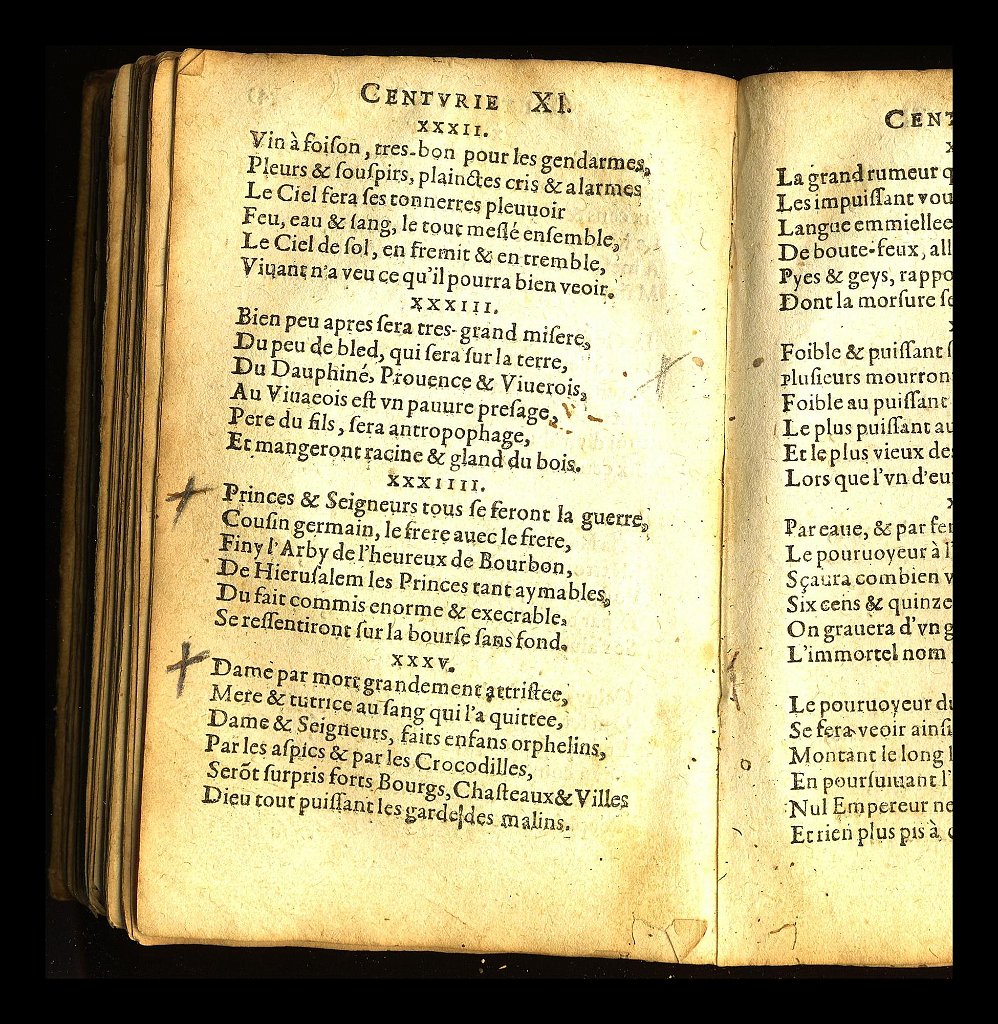 CENTVRIE XI.
XXXII.
Vin à foiſon, tres-bon pour les gendarmes,
Pleurs & ſouſpirs, plainctes cris & alarmes
Le Ciel fera ſes tonnerres pleuuoir
Feu, eau & ſang, le tout meſlé enſemble,
Le Ciel de ſol, en fremit & en tremble,
Viuant n'a veu ce qu'il pourra bien veoir.
XXXIII.
Bien peu apres ſera tres-grand miſere,
Du peu de bled, qui ſera ſur la terre,
Du Dauphiné, Prouence & Viuerois,
Au Viuaeois eſt vn pauure preſage,
Pere du fils, ſera antropophage,
Et mangeront racine & gland du bois.
XXXIIII.
Princes & Seigneurs tous ſe feront la guerre,
Couſin germain, le frere auec le frere,
Finy l'Arby de l'heureux de Bourbon,
De Hieruſalem les Princes tant aymables,
Du fait commis enorme & execrable,
Se reſſentiront ſur la bourſe ſans fond.
XXXV.
Dame par mort grandement attriſtee,
Mere & tutrice au ſang qui l'a quittee,
Dame & Seigneurs, faits enfans orphelins,
Par les aſpics & par les Crocodilles,
Serõt ſurpris forts Bourgs, Chaſteaux & Villes
Dieu tout puiſſant les garde des malins.
CENT
La grand rumeur q
Les impuiſſant vou
Langue emmiellee
De boute-feux, all
Pyes & geys, rappo
Dont la morſure ſe
Foible & puiſſant ſ
Pluſieurs mourron
Foible au puiſſant
Le plus puiſſant au
Et le plus vieux de
Lors que l'vn d'eu
Par eaue, & par fer
Le pouruoyeur à l'
Sçaura combien v
Six cens & quinze
On grauera d'vn g
L'immortel nom
Le pouruoyeur du
Se fera veoir ainſi
Montant le long l
En pourſuiuant l'
Nul Empereur ne
Et rien plus pis à